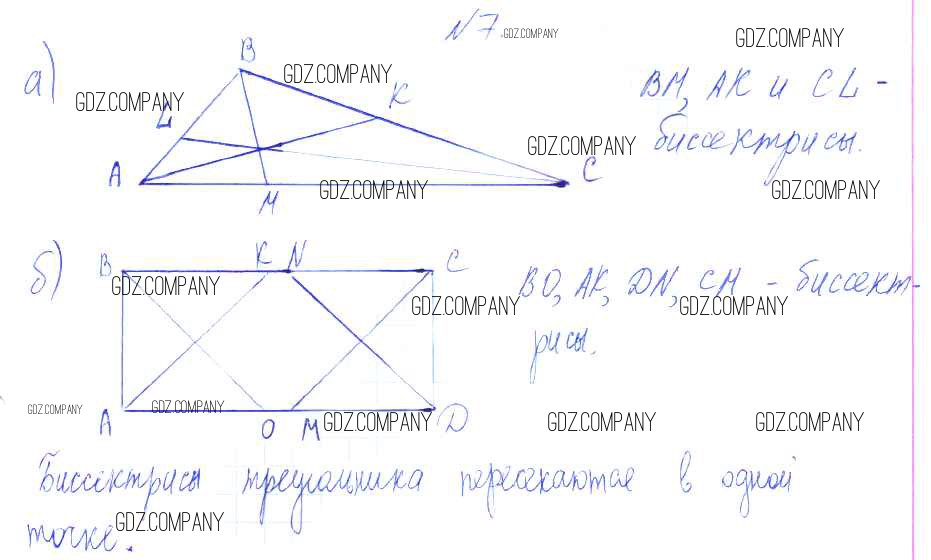 №7. GDZ.COMPANY
GDZ.COMPANY
а)
B
GDZ.COMPANY
K
BM, AK и CL -
GDZ.COMPANY
L
биссектрисы.
GDZ.COMPANY
A
C
M
GDZ.COMPANY
GDZ.COMPANY
б)
B
K N
C
GDZ.COMPANY
BO, AK, DN, CM - биссект-
GDZ.COMPANY
GDZ.COMPANY
рисы.
GDZ.COMPANY
GDZ.COMPANY
A
O
M
GDZ.COMPANY
D
GDZ.COMPANY
GDZ.COMPANY
Биссектрисы треугольника пересекаются в одной
точке.
GDZ.COMPANY